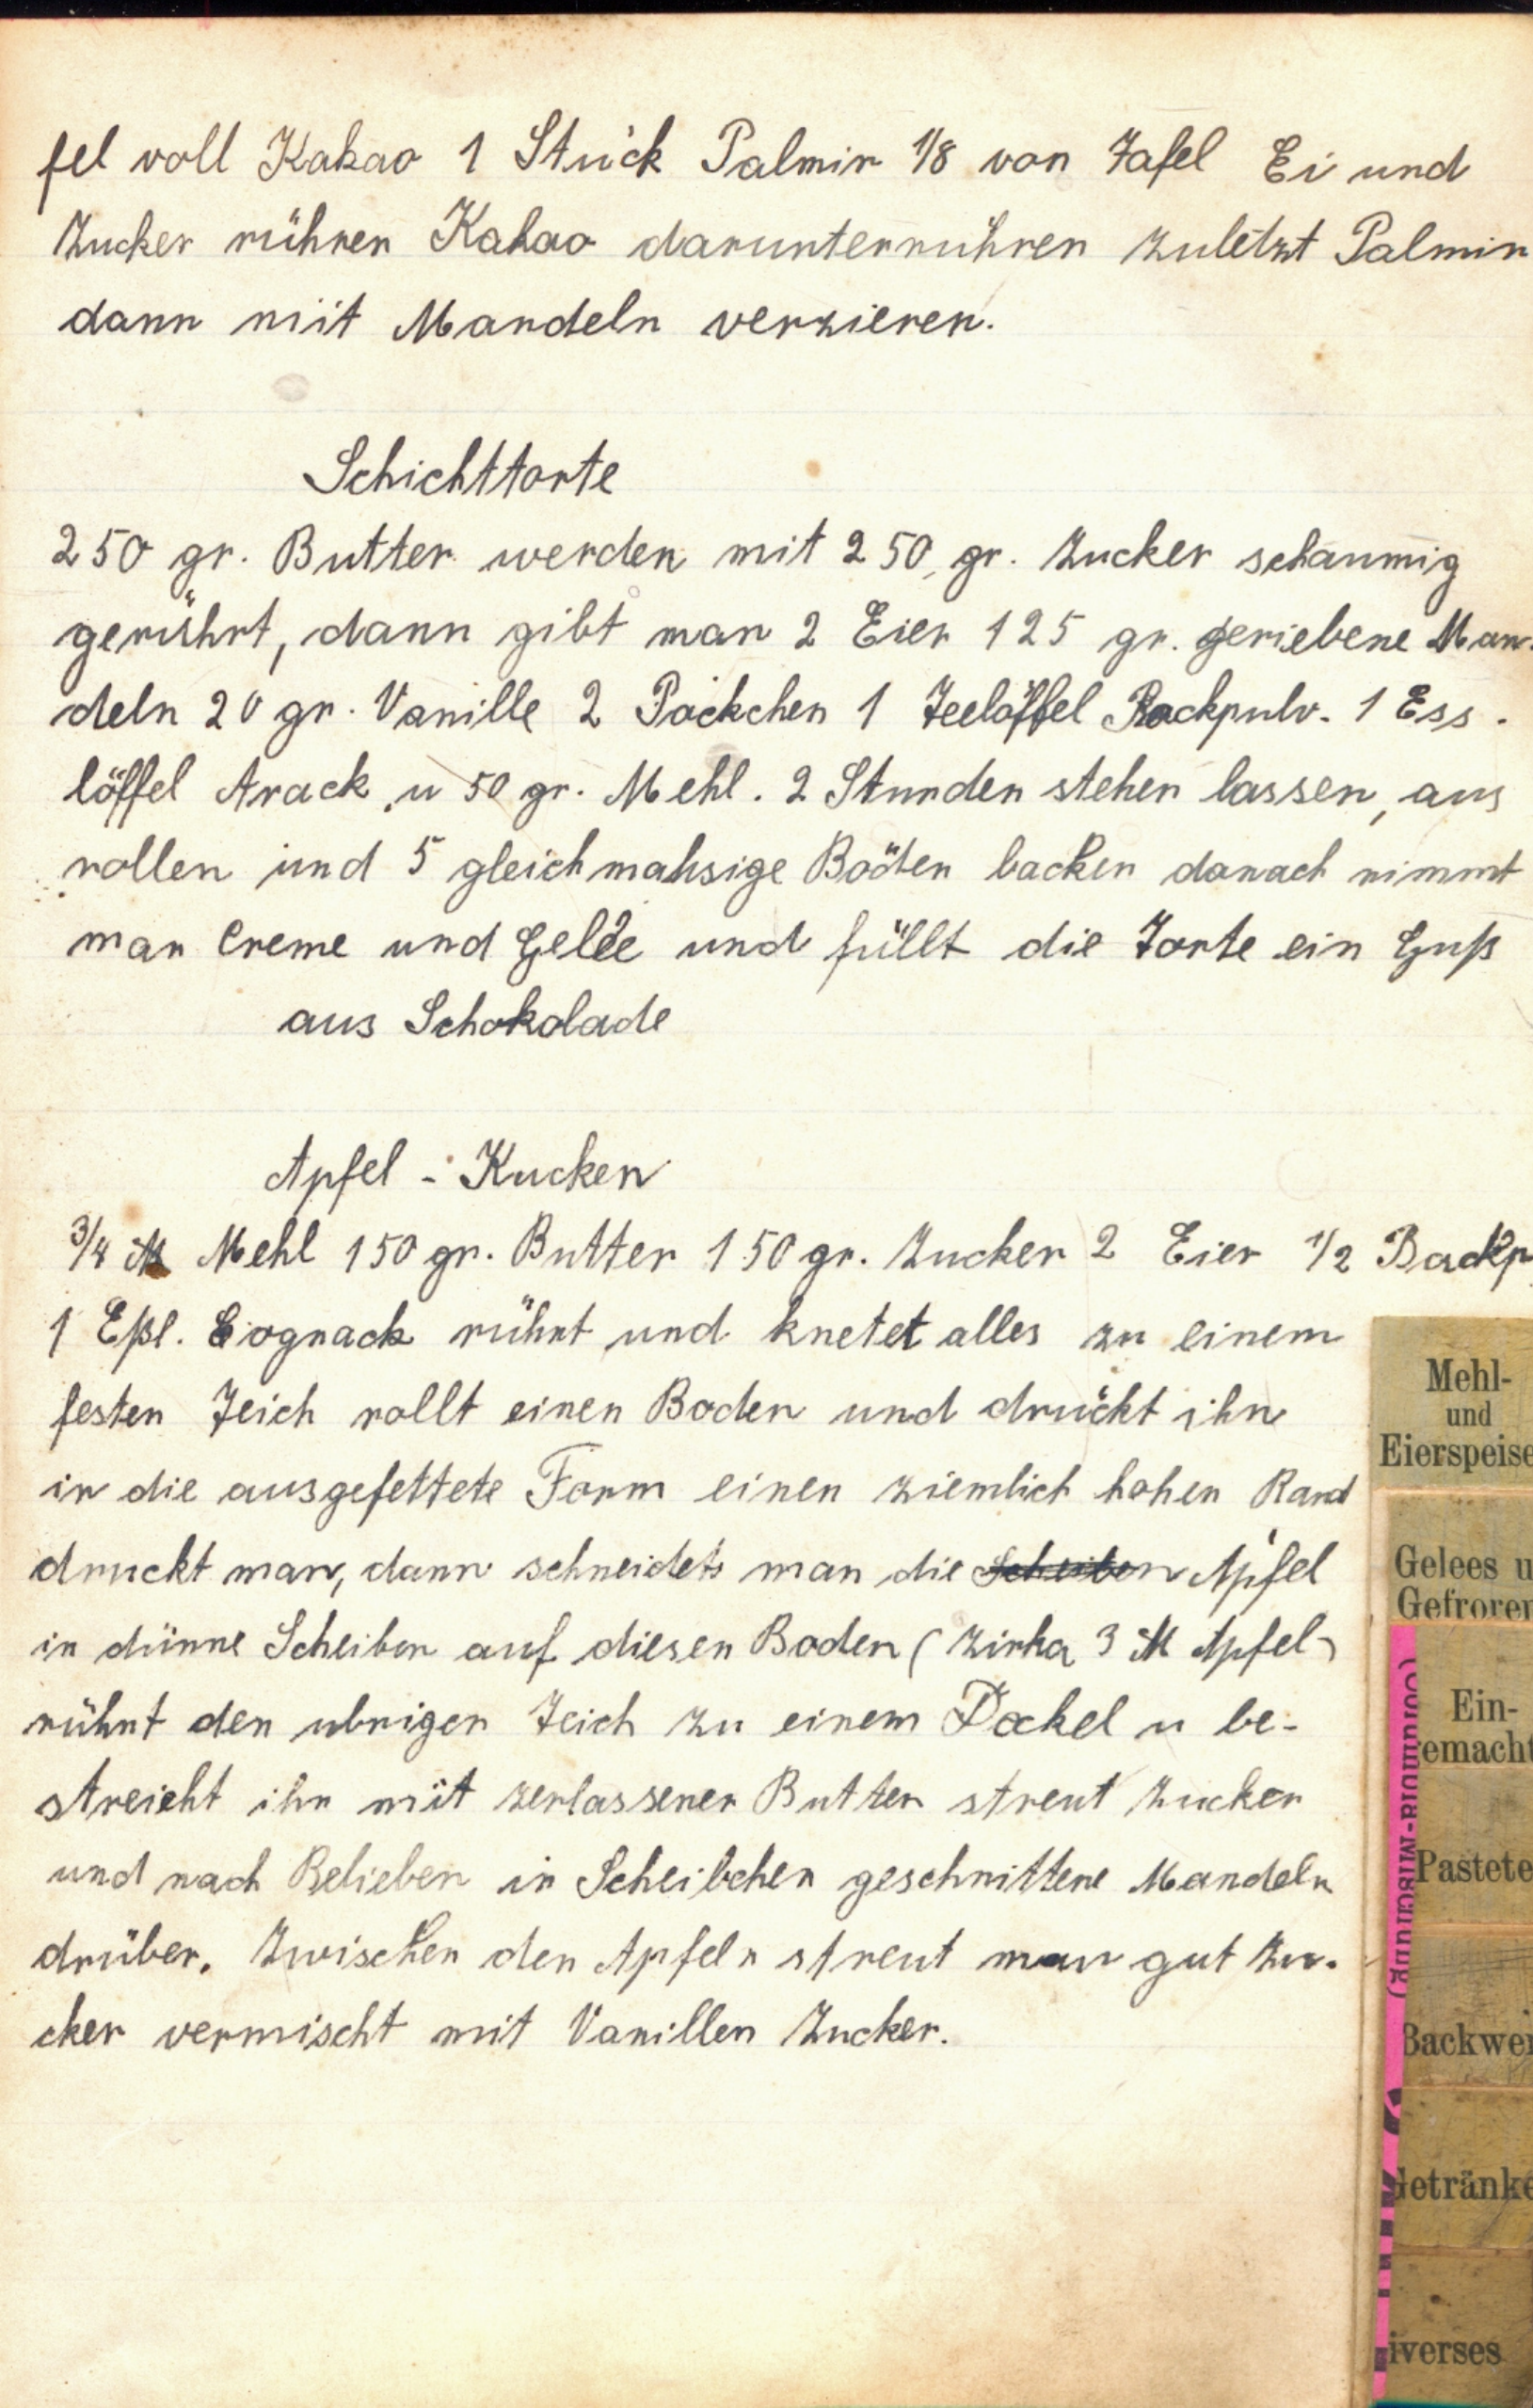 fel voll Kakao 1 Stück Palmin 1/8 von Tafel Ei und
Zucker rühren Kakao darunterrühren zuletzt Palmin
dann mit Mandeln verzieren.
Schichttorte
250 gr. Butter werden mit 250 gr. Zucker schaumig
gerührt, dann gibt man 2 Eier 125 gr. geriebene Man-
deln 20 gr. Vanille 2 Päckchen 1 Teelöffel Backpulv. 1 Ess-
löffel Arack u 50 gr. Mehl. 2 Stunden stehen lassen, aus
rollen und 5 gleichmahsige Böden backen danach nimmt
man Creme und Gelee und füllt die Torte ein Guß
aus Schokolade
Apfel - Kucken
3/4 ℔ Mehl 150 gr. Butter 150 gr. Zucker 2 Eier 1/2 Backp
1 Eßl. Cognack rührt und knetet alles zu einem
festen Teich rollt einen Boden und drückt ihn
in die ausgefettete Form einen ziemlich hohen Rand
druckt man, dann schneidets man die Scheiben Äpfel
in dünne Scheiben auf diesen Boden (zirka 3 ℔ Apfel)
rührt den ubrigen Teich zu einem Deckel u be-
streicht ihn mit zerlassener Butter streut Zucker
und nach Belieben in Scheibchen geschnittene Mandeln
drüber. Zwischen den Apfeln streut man gut Zu-
cker vermischt mit Vanillen Zucker.
Mehl-
und
Eierspeise
Gelees u
Gefroren
Ein-
emacht
Pastete
Backwe
Getränke
iverses